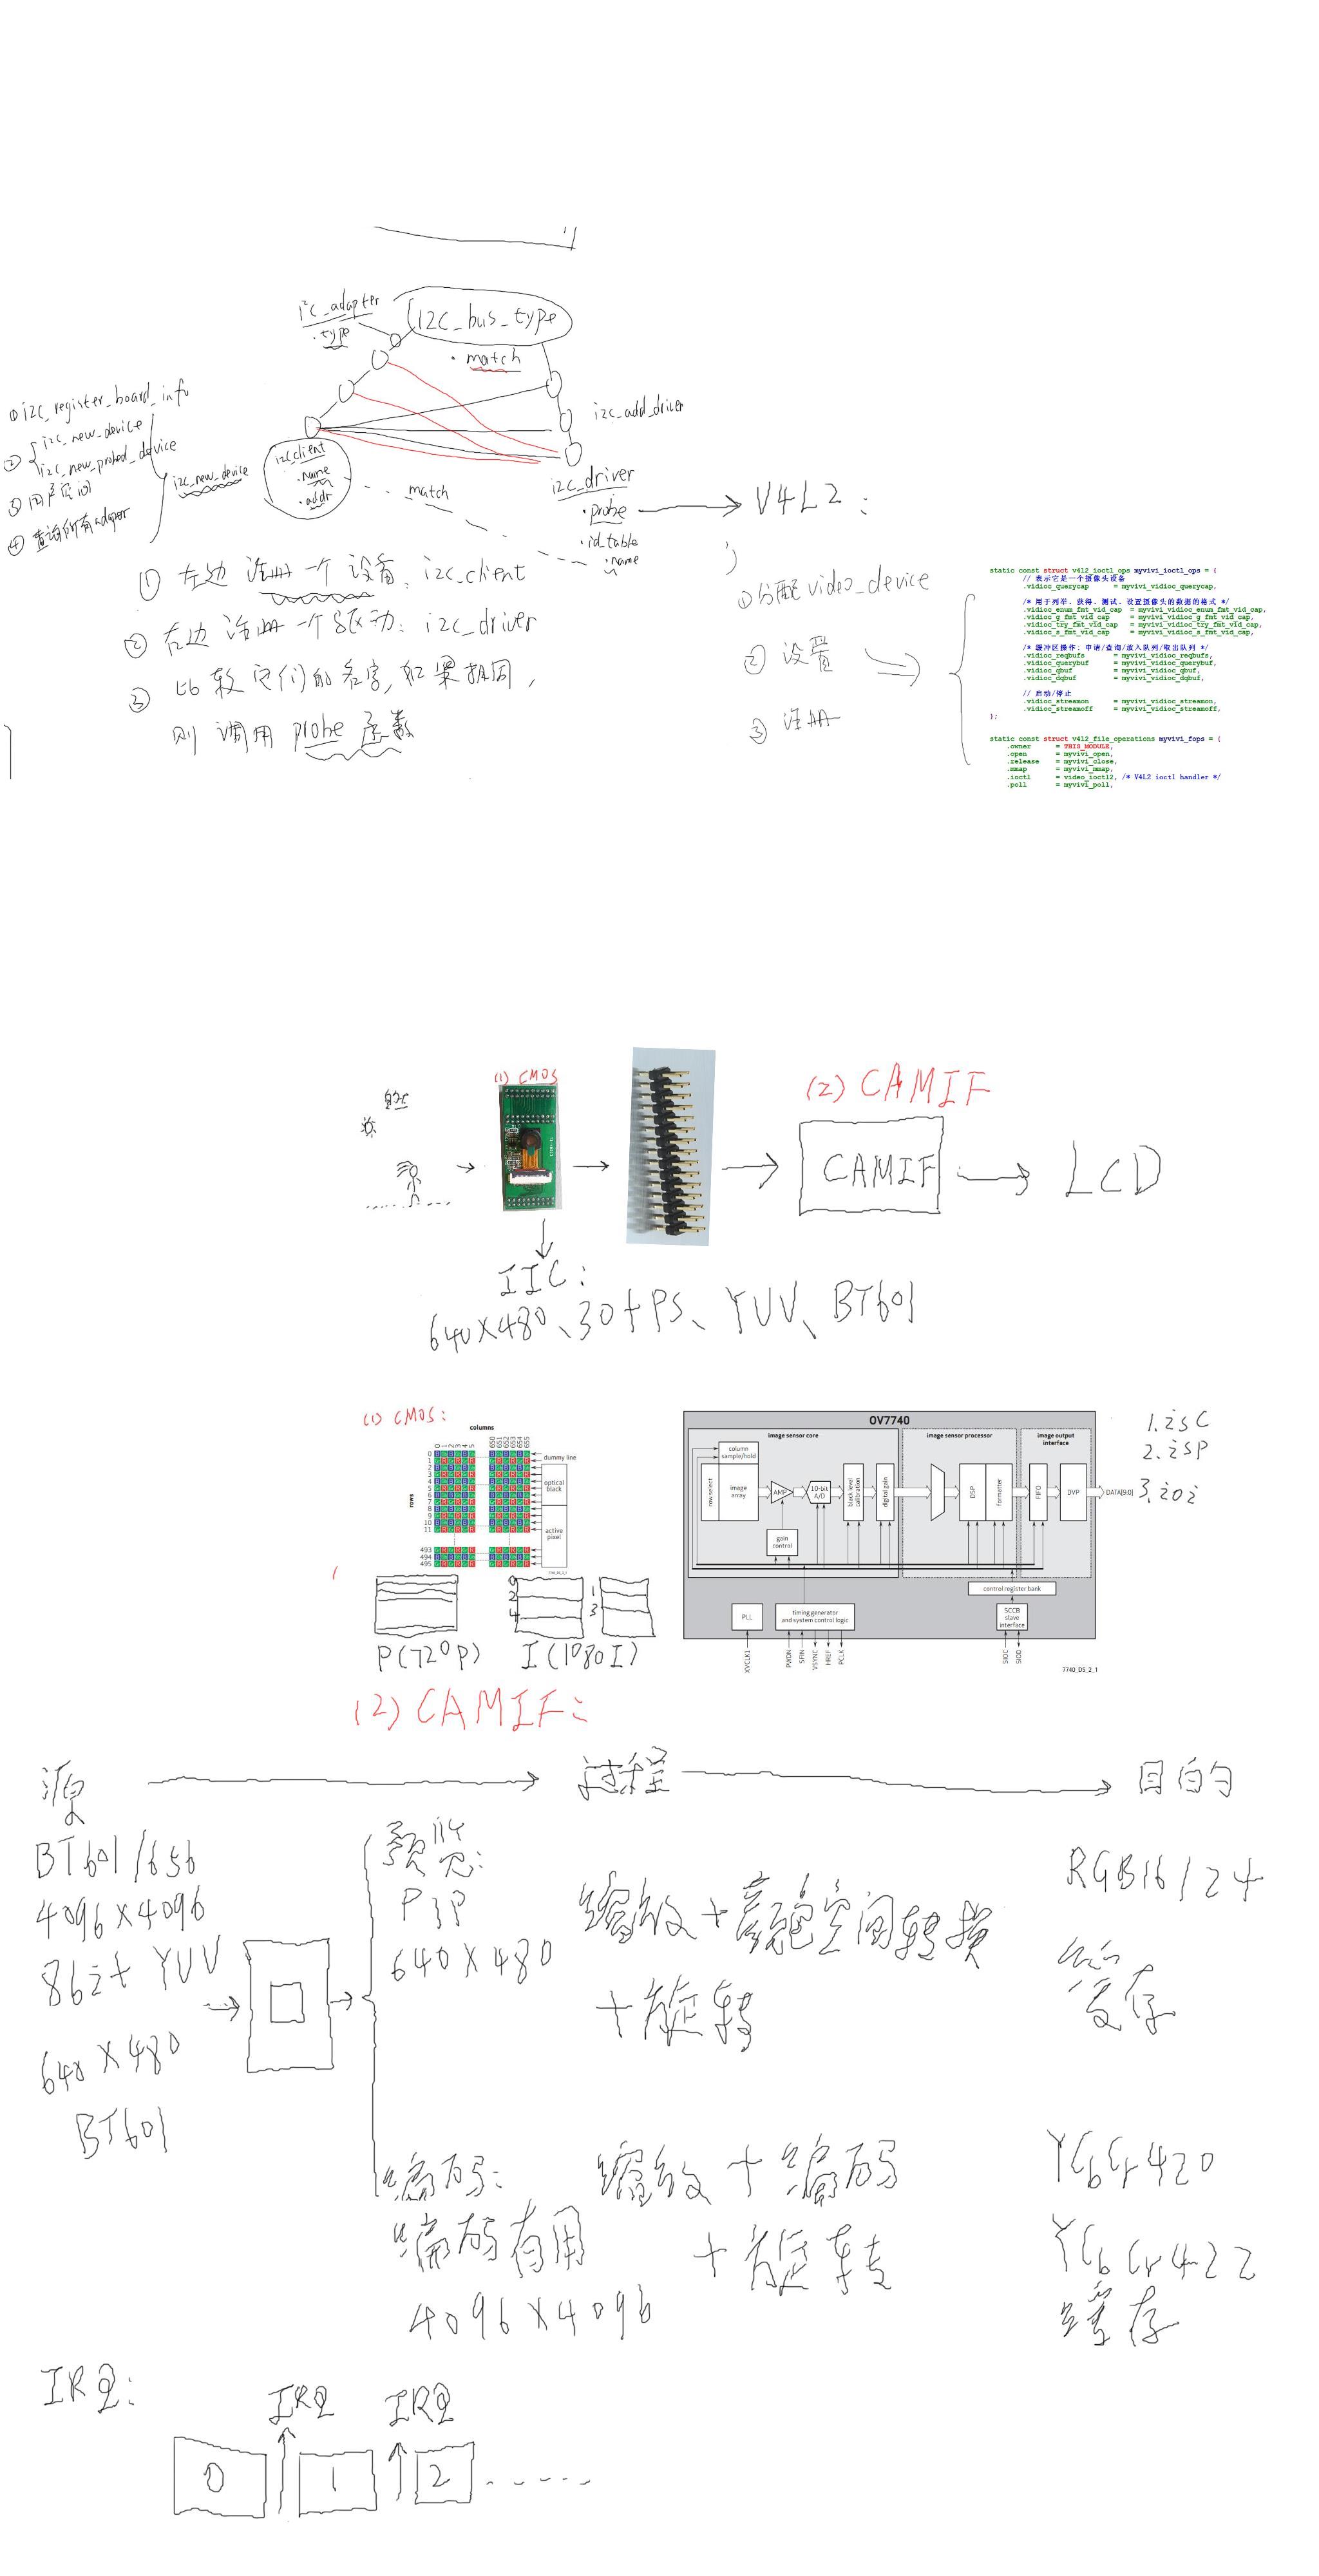 i2c_adapter
.type
i2c_bus_type
.match
①i2c_register_board_info
②
i2c_new_device
i2c_new_probed_device
③用户空间
④查询所有adapter
i2c_new_device
i2c_client
.name
.addr
match
i2c_add_driver
i2c_driver
.probe
.id_table
.name
V4L2：
①左边 注册一个设备：i2c_client
②右边注册一个驱动：i2c_driver
③比较它们的名字,如果相同,
则调用 probe 函数
①分配video_device
②设置
③注册
static const struct v4l2_ioctl_ops myvivi_ioctl_ops = {
// 表示它是一个摄像头设备
.vidioc_querycap = myvivi_vidioc_querycap,
/* 用于列举、获得、测试、设置摄像头的数据的格式 */
.vidioc_enum_fmt_vid_cap = myvivi_vidioc_enum_fmt_vid_cap,
.vidioc_g_fmt_vid_cap = myvivi_vidioc_g_fmt_vid_cap,
.vidioc_try_fmt_vid_cap = myvivi_vidioc_try_fmt_vid_cap,
.vidioc_s_fmt_vid_cap = myvivi_vidioc_s_fmt_vid_cap,
/* 缓冲区操作: 申请/查询/放入队列/取出队列 */
.vidioc_reqbufs = myvivi_vidioc_reqbufs,
.vidioc_querybuf = myvivi_vidioc_querybuf,
.vidioc_qbuf = myvivi_vidioc_qbuf,
.vidioc_dqbuf = myvivi_vidioc_dqbuf,
// 启动/停止
.vidioc_streamon = myvivi_vidioc_streamon,
.vidioc_streamoff = myvivi_vidioc_streamoff,
};
static const struct v4l2_file_operations myvivi_fops = {
.owner = THIS_MODULE,
.open = myvivi_open,
.release = myvivi_close,
.mmap = myvivi_mmap,
.ioctl = video_ioctl2, /* V4L2 ioctl handler */
.poll = myvivi_poll,
自然
(1) CMOS
(2) CAMIF
CAMIF
LCD
IIC：
640X480、30fPS、YUV、BT601
(1) CMOS:
columns
0 1 2 3 4 5 650 651 652 653 654 655
rows
0
1
2
3
4
5
6
7
8
9
10
11
493
494
495
dummy line
optical black
active pixel
0
2
4
1
3
P(720P)
I(1080I)
OV7740
image sensor core
image sensor processor
image output interface
column sample/hold
row select
image array
AMP
10-bit A/D
black level calibration
digital gain
gain control
DSP
formatter
FIFO
DVP
DATA[9:0]
control register bank
PLL
timing generator and system control logic
SCCB slave interface
XVCLK1
PWDN
SFIN
VSYNC
HREF
PCLK
SIOC
SIOD
7740_DS_2_1
1.isC
2.isP
3.ioi
(2) CAMIF:
源
过程
目的
BT601/656
4096X4096
8bit YUV
640X480
BT601
预览:
PIP
640X480
缩放+颜色空间转换
+旋转
RGB16/24
缓存
编码:
编码有用
4096X4096
缩放+编码
+旋转
YCbCr420
YCbCr422
缓存
IRQ:
IRQ
IRQ
0
1
2